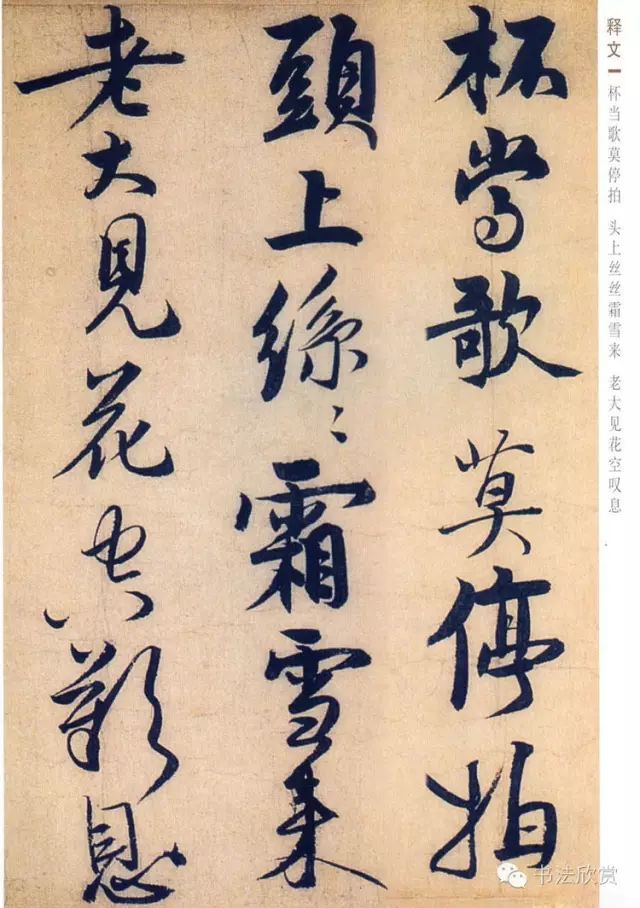 杯當歌莫停拍
頭上絲〻霜雪来
老大見花空歎息
释文
杯当歌莫停拍 头上丝丝霜雪来 老大见花空叹息
书法欣赏